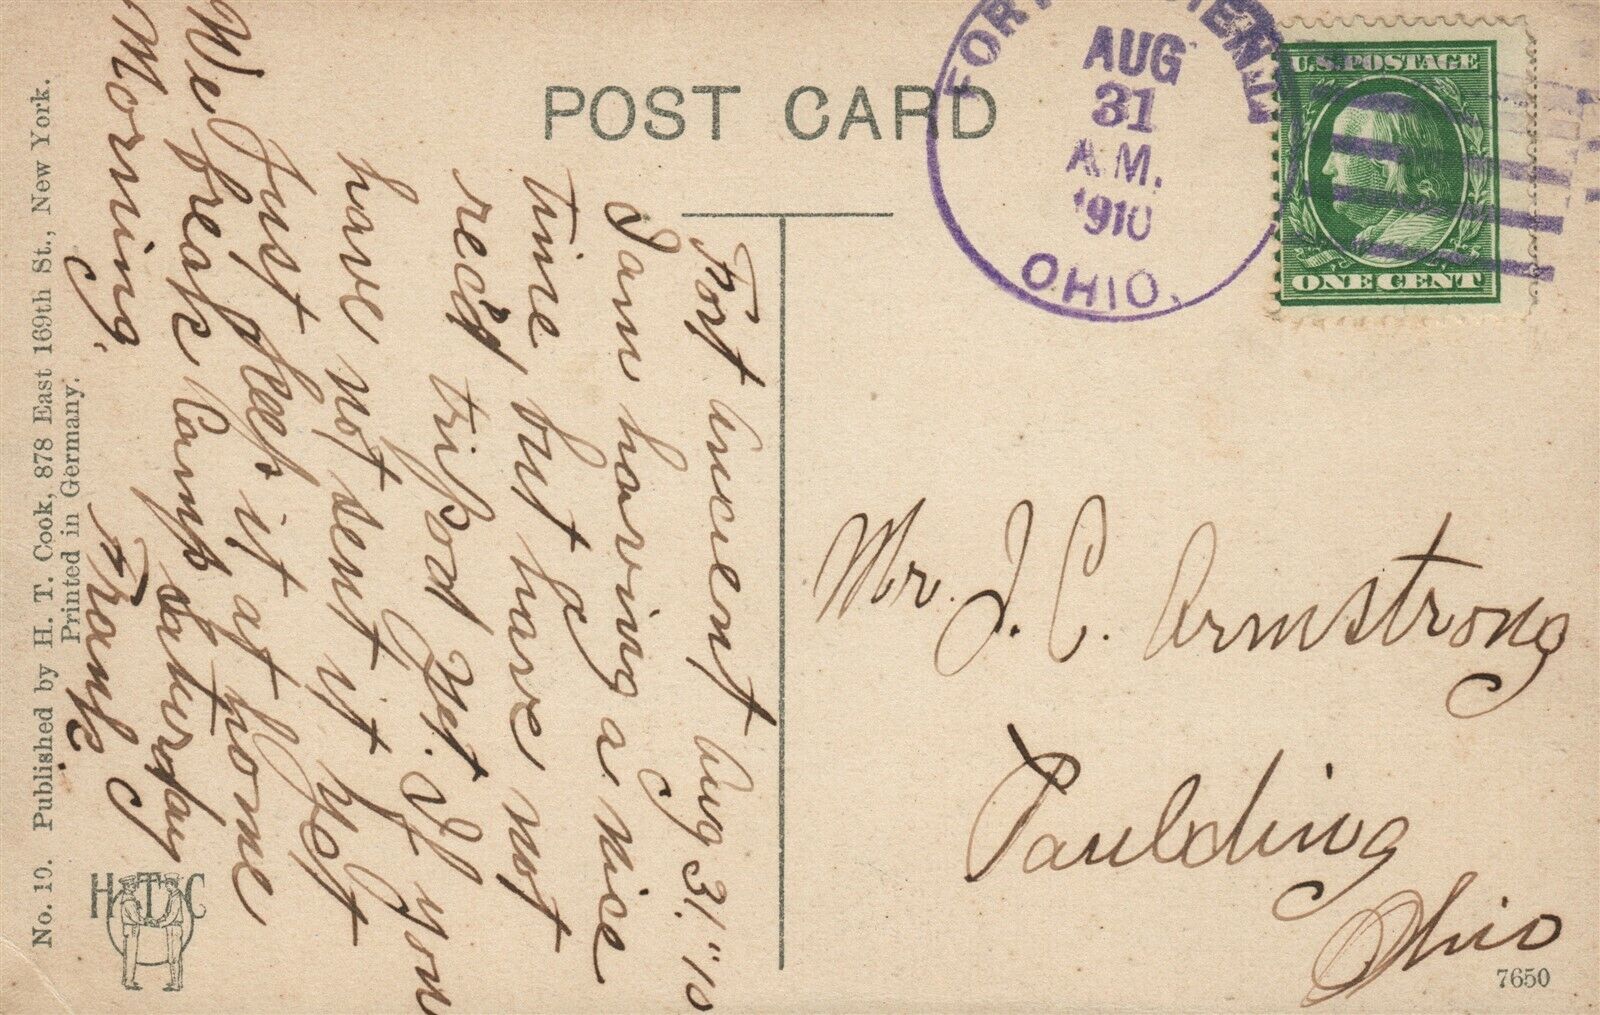 POST CARD
FORT ANCIENT
AUG
31
A.M.
1910
OHIO.
U.S. POSTAGE
ONE CENT
Fort Ancient Aug 31." 10
I am having a nice
time, but have not
rec'd tripod yet. If you
have not sent it yet
Just keep it at home
We break Camp Saturday
Morning.
Frank
Mr. J. C. Armstrong
Paulding
Ohio
No. 10. Published by H. T. Cook, 878 East 169th St., New York.
Printed in Germany.
H T C
7650